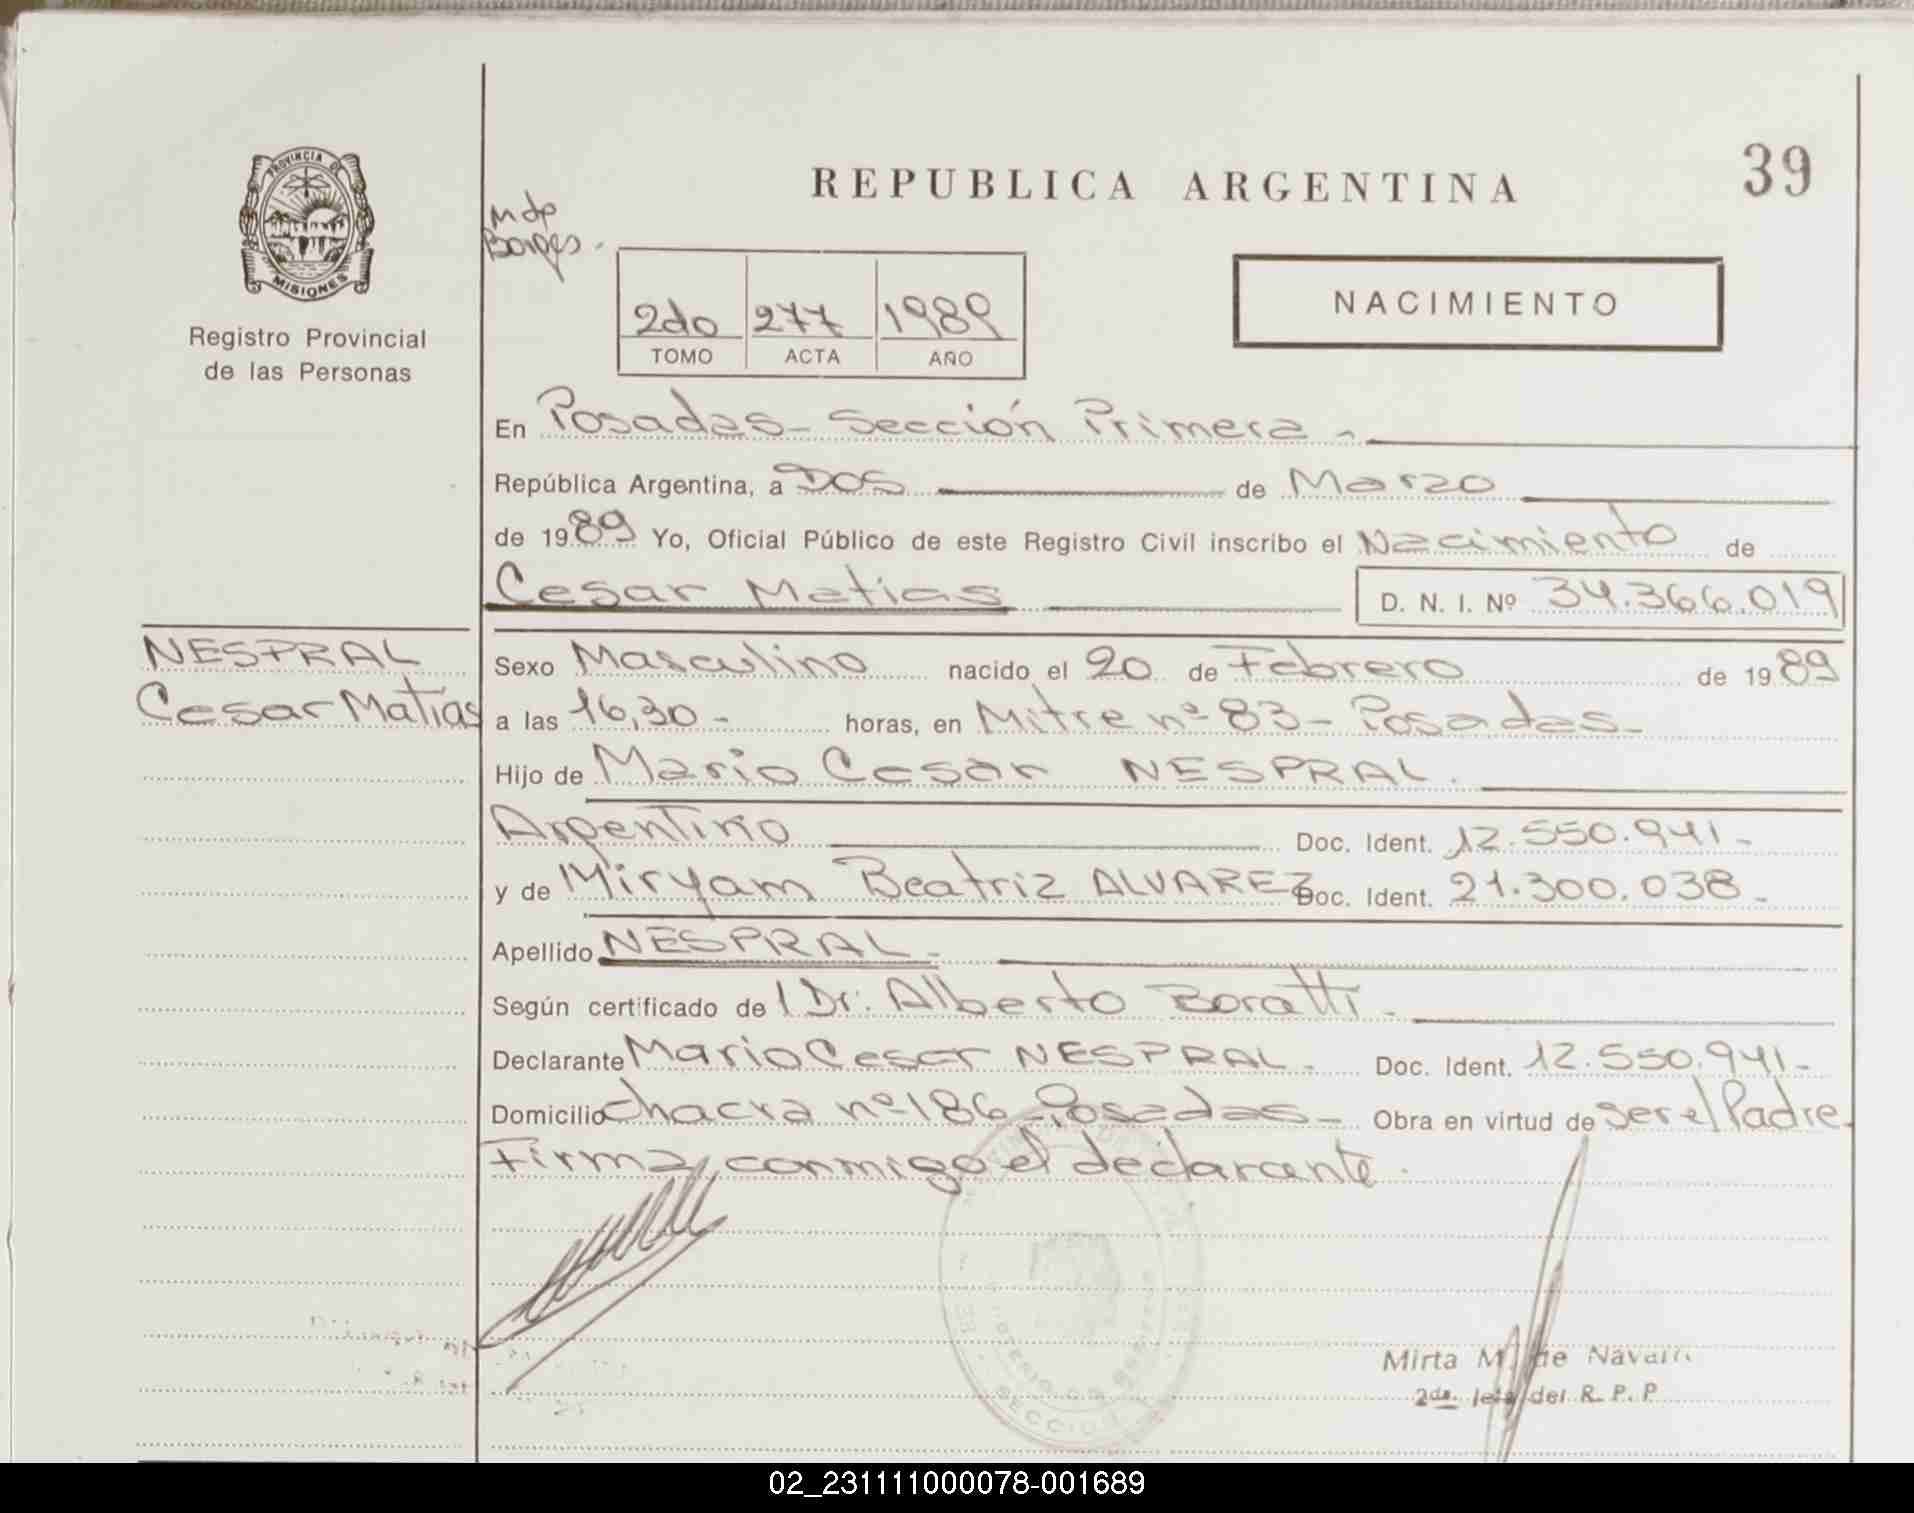 PROVINCIA DE
MISIONES
Registro Provincial
de las Personas
REPUBLICA ARGENTINA
39
Mdp
Borges.
2do 277 1989
TOMO ACTA AÑO
NACIMIENTO
En Posadas - Sección Primera -
República Argentina, a Dos de Marzo
de 1989 Yo, Oficial Público de este Registro Civil inscribo el Nacimiento de
Cesar Matias D. N. I. Nº 34.366.019
NESPRAL
Cesar Matias
Sexo Masculino nacido el 20 de Febrero de 1989
a las 16,30 - horas, en Mitre nº 83 - Posadas -
Hijo de Mario Cesar NESPRAL.
Argentino Doc. Ident. 12.550.941 -
y de Miryam Beatriz ALVAREZ Doc. Ident. 21.300.038 -
Apellido NESPRAL -
Según certificado del Dr. Alberto Boratti -
Declarante Mario Cesar NESPRAL - Doc. Ident. 12.550.941 -
Domicilio chacra nº 186 - Posadas - Obra en virtud de ser el Padre -
Firma conmigo el declarante.
SECCION
Mirta M. de
2da. Jefa del R. P. P
02_231111000078-001689